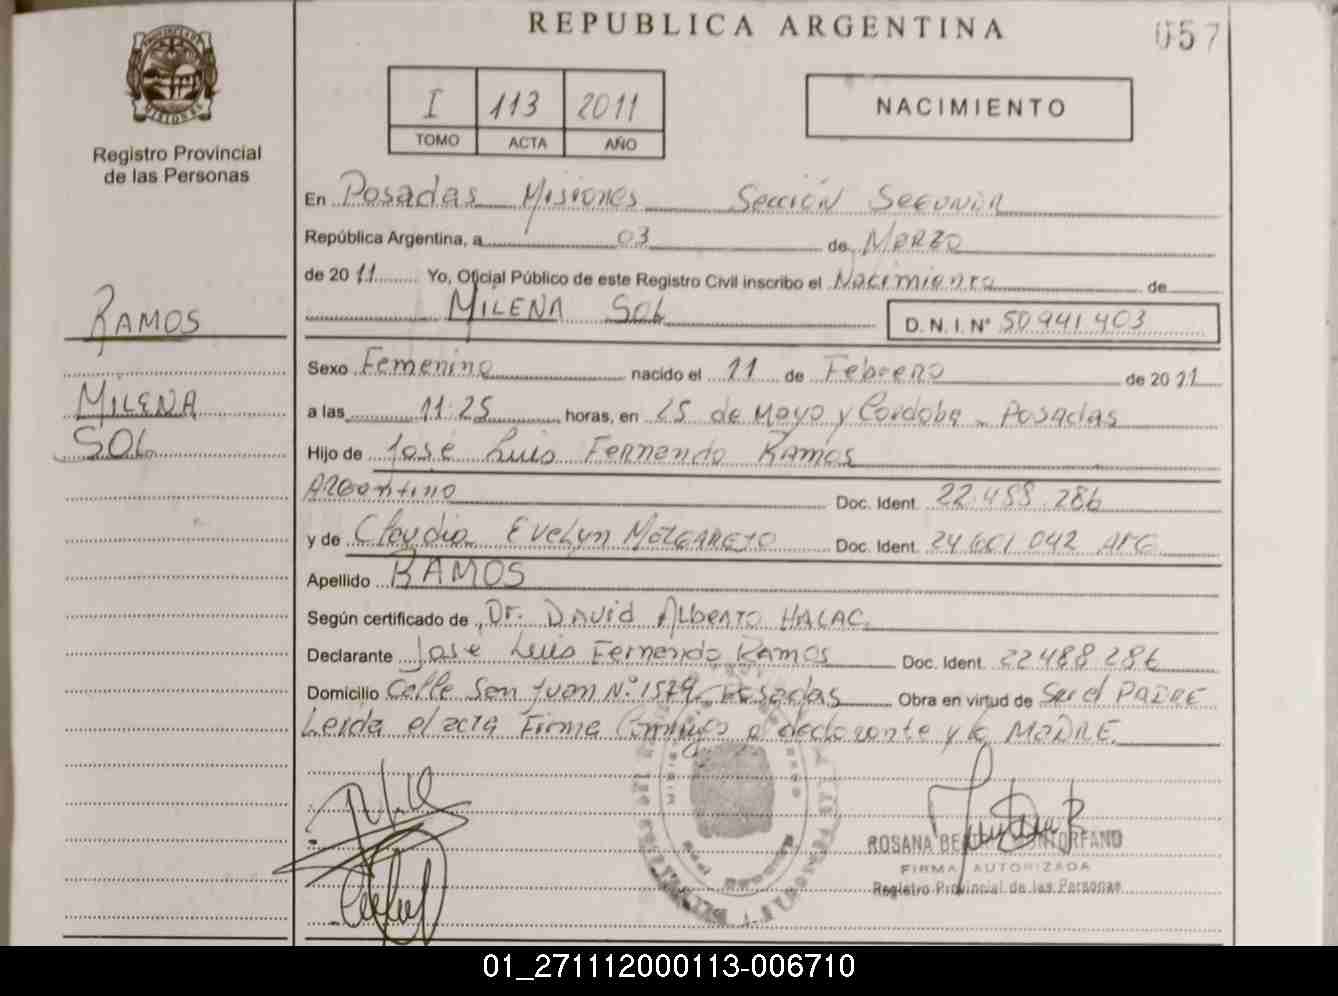 REPUBLICA ARGENTINA
057
Registro Provincial
de las Personas
I 113 2011
TOMO ACTA AÑO
NACIMIENTO
RAMOS
MILENA
SOL
En Posadas Misiones Sección Segunda
República Argentina, a 03 de Marzo
de 2011 Yo, Oficial Público de este Registro Civil inscribo el Nacimiento de
MILENA SOL D. N. I. Nº 50 941 403
Sexo Femenino nacido el 11 de Febrero de 2011
a las 11:25 horas, en 25 de Mayo y Cordoba - Posadas
Hijo de José Luis Fernando Ramos
Argentino Doc. Ident. 22.488 286
y de Claudia Evelyn Doc. Ident. 24 601 042 ARG
Apellido RAMOS
Según certificado de Dr. David Alberto HALAC
Declarante Jose Luis Fernando Ramos Doc. Ident. 22 488 286
Domicilio Calle San Juan Nº 1579 Posadas Obra en virtud de Ser el PADRE
Leida el acta Firma Conmigo el declarante y la MADRE
ROSANA
FIRMA AUTORIZADA
Registro Provincial de las Personas
01_271112000113-006710